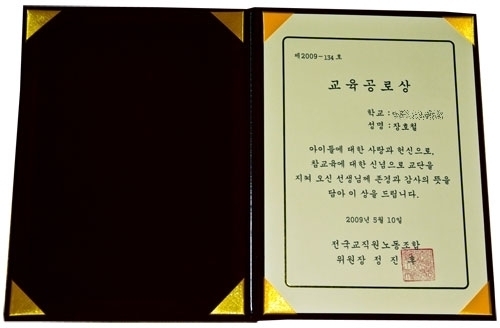 제2009-134 호
교육공로상
학교 :
성명 : 장호철
아이들에 대한 사랑과 헌신으로,
참교육에 대한 신념으로 교단을
지켜 오신 선생님께 존경과 감사의 뜻을
담아 이 상을 드립니다.
2009년 5월 10일
전국교직원노동조합
위원장 정 진 후